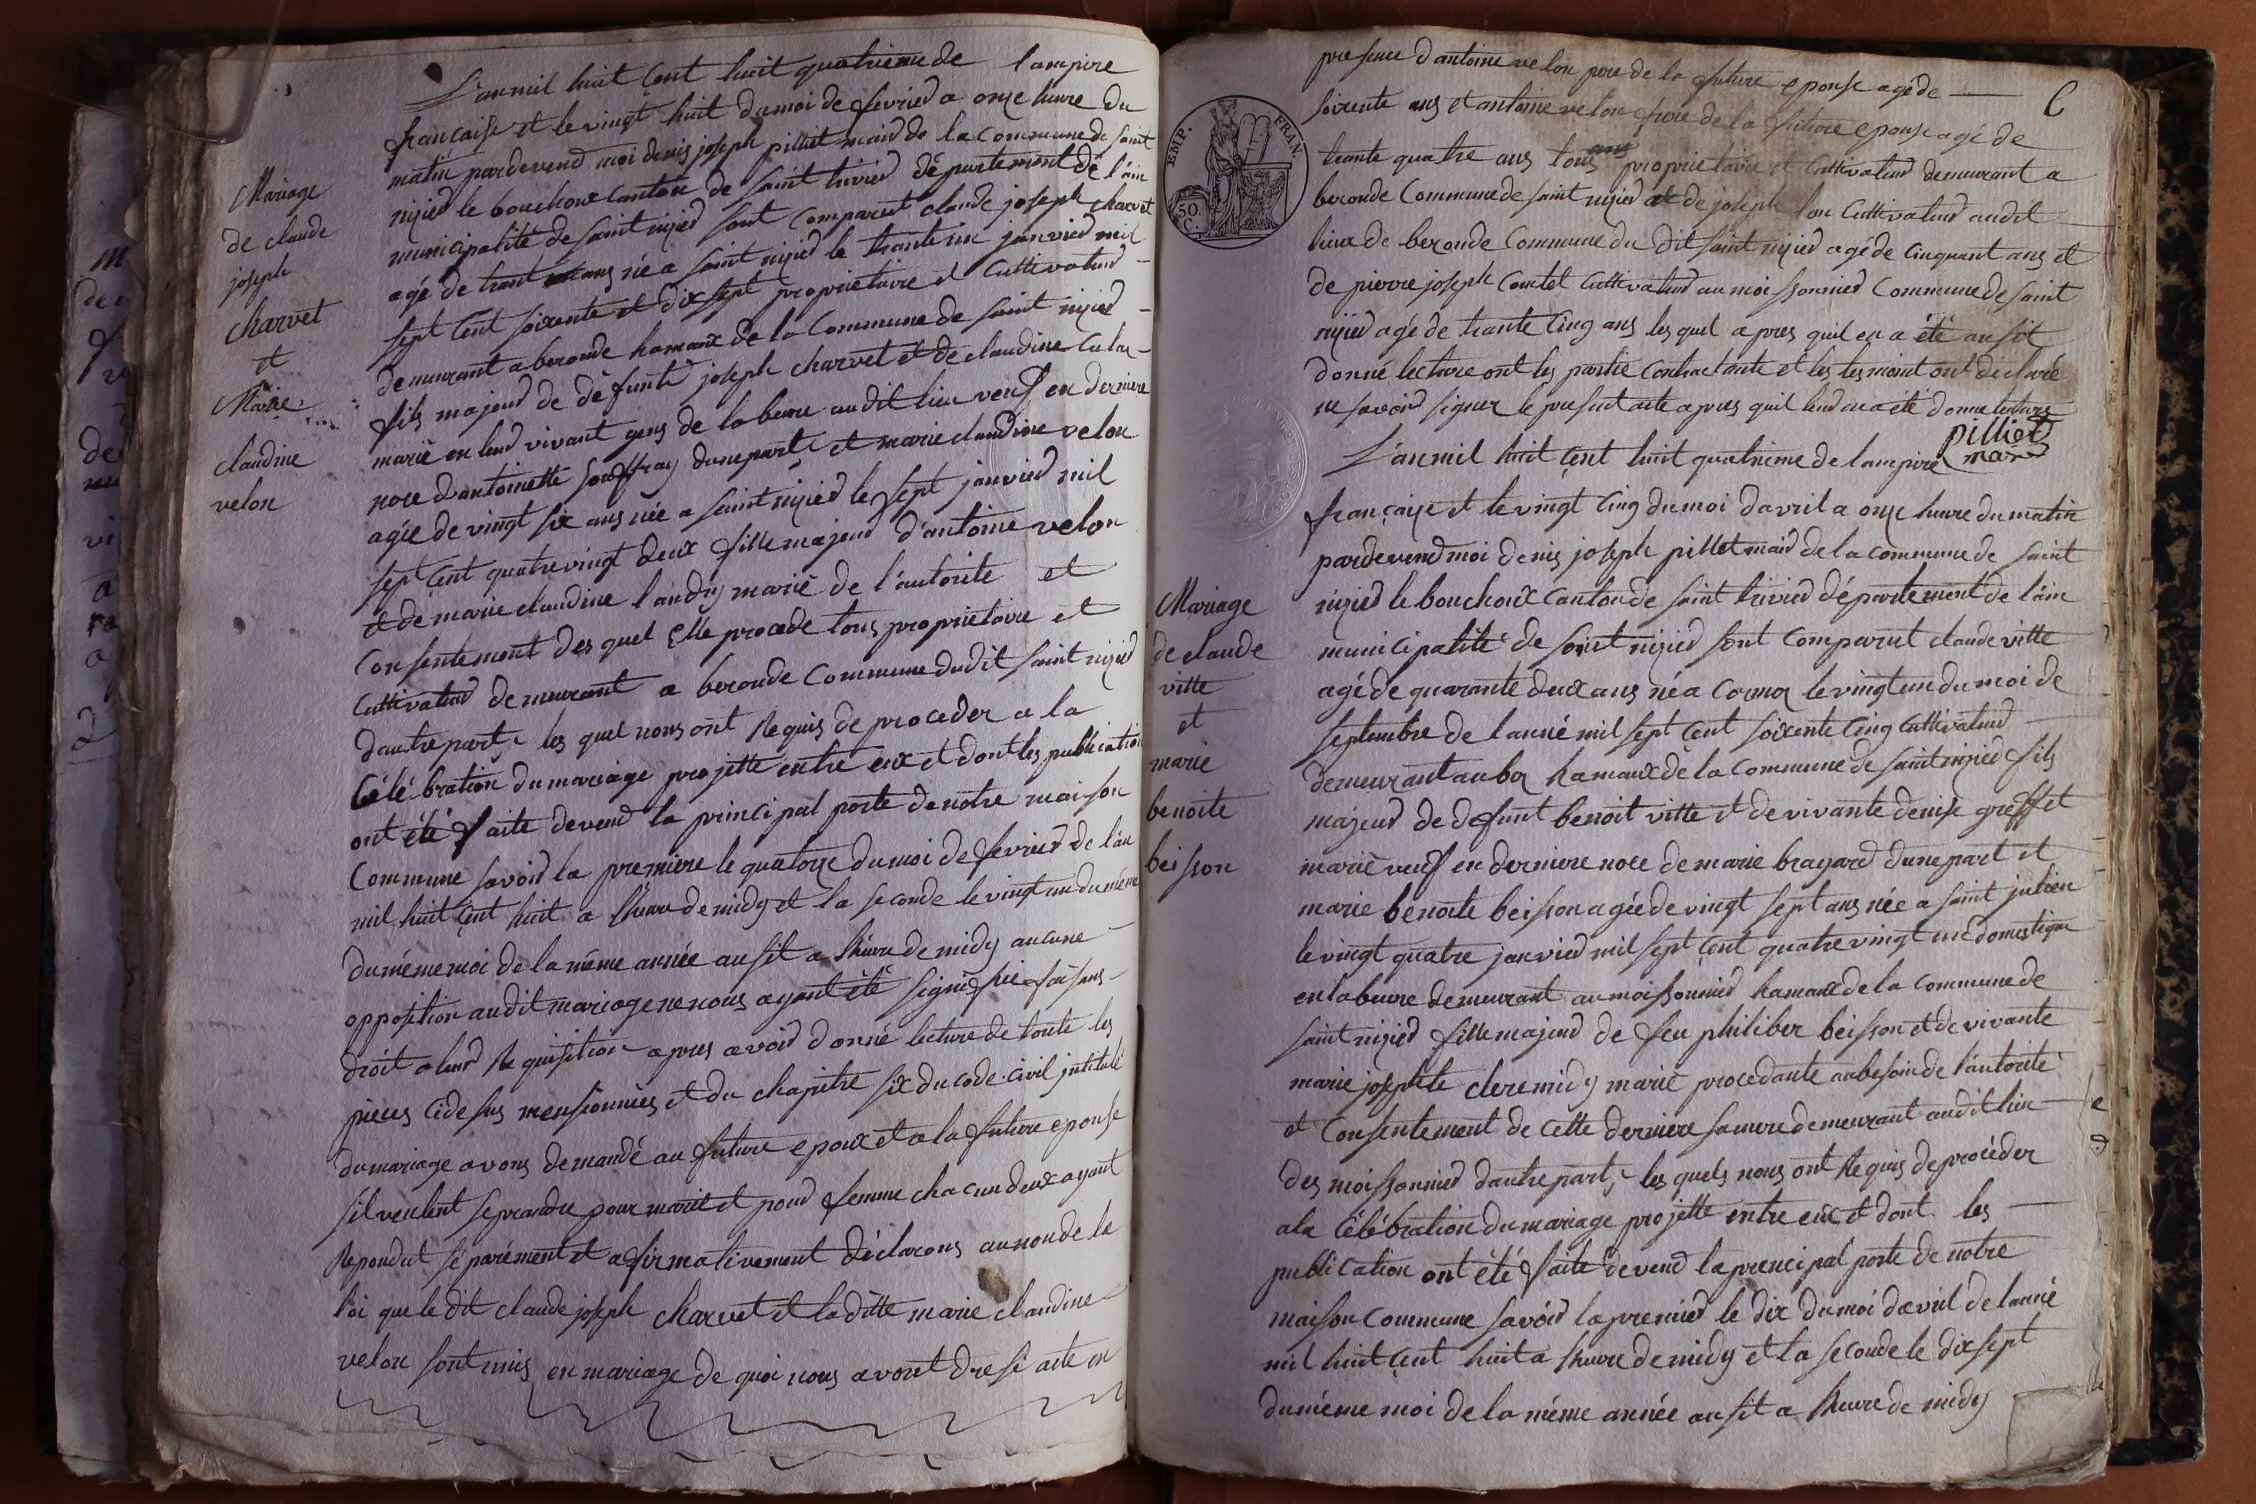 L'an mil huit Cent huit quatrieme de lampire
francaise et le vingt huit du moi de fevried a onze heure du
matin pardevend moi denis joseph pilliet maid de la commune de saint
nizied le bouchoux canton de saint trivied département de l'ain
municipalité de saint nizied sont comparut claude joseph charvet
agé de trant ans né a saint nizied le trante un janvied mil
sept Cent soixente et dix sept proprietaire et Cultivateud
demeurant a beronde hamaux de la Commune de saint nizied
fils majeud de défunts joseph charvet et de claudine
marié en leud vivant gens de labeure audit lieu veuf en derniere
noce d'antoinette souffray dune part et marie claudine velon
agée de vingt six ans née a saint nizied le sept janvied mil
sept Cent quatre vingt deux fille majeud d'antoine velon
et de marie claudine l'andy marié de l'autorité et
Consentement des quel elle procede tous proprietaire et
Cultivateud demeurant a beronde Commune dudit saint nizied
dautre part les quel nous ont Requis de proceder a la
Célébration du mariage projetté entre eux et dont les publication
ont été faite devend la principal porte de notre maison
Commune savoid la premiere le quatorze du moi de fevried de l'an
mil huit Cent huit a lheure de midy et la seconde le vingt un du même
du même moi de la même année ausit a lheure de midy aucune
opposition audit mariage ne nous ayant été signifiée faisans
droit a leud Requisition apres avoid donné lecture de toute les
pieces cidesus mensionnées et du chapitre six du code civil intitulé
du mariage avons demandé au future epoux et a la future epouse
sil veulent seprandre pour marit et poud femme chacun deux ayant
Repondut séparément et afirmativement déclarons au nom de la
loi que le dit claude joseph charvet et la ditte marie claudine
velon sont unis en mariage de quoi nous avont dresé acte en
Mariage
de claude
joseph
charvet
et
Marie
claudine
velon
presence d'antoine velon pere de la future epouse agé de
C
soixente ans et antoine velon frere de la future epouse agé de
trante quatre ans tous proprietaire et Cultivateud demeurant a
beronde Commune de saint nizied et de joseph lon Cultivateud audit
lieux de beronde Commune du dit saint nizied agé de Cinquant ans et
de pierre joseph Coutet Cultivateud au moissonnied Commune de saint
nizied agé de trante Cinq ans les quel apres quil en a été ausit
donné lecture ont les partie Contractante et les tesmoint ont déclaré
ne savoid signer le present acte apres quil leud en a été donné lecture
pilliet
maid
EMP. FRAN.
50. C.
L'an mil huit Cent huit quatrieme de lampire
françaize et le vingt Cinq du moi davril a onze heure du matin
pardevend moi denis joseph pilliet maid de la commune de saint
nizied le bouchoux Canton de saint trivied département de l'ain
municipalité de saint nizied sont comparut claude vitte
agé de quarante deux ans né a Cormoz le vingt un du moi de
septembre de lanné mil sept Cent soixente Cinq Cultivateud
demeurant au boz hamaux de la commune de saint nizied fils
majeud de defunt benoit vitte et de vivante denise greffet
marié veuf en derniere noce de marie brayard dune part et
marie benoite beisson agée de vingt sept ans née a saint julien
le vingt quatre janvied mil sept Cent quatre vingt un domestique
en labeure demeurant au moissonnied hamaux de la commune de
saint nizied fille majeud de feu philiber beisson et de vivante
marie josephte cleremidy marié procedante au besoin de l'autorité
et Consentement de cette derniere sa mere demeurant audit lieu
des moissonnied dautre part, les quels nous ont Requis de procéder
a la Célébration du mariage projetté entre eux et dont les
publication ont été faite devend la principal porte de notre
maison commune savoid la premied le dix du moi davril de lanné
mil huit Cent huit a lheure de midy et la seconde le dix sept
du même moi de la même année ausit a lheure de midy
Mariage
de claude
vitte
et
marie
benoite
beisson